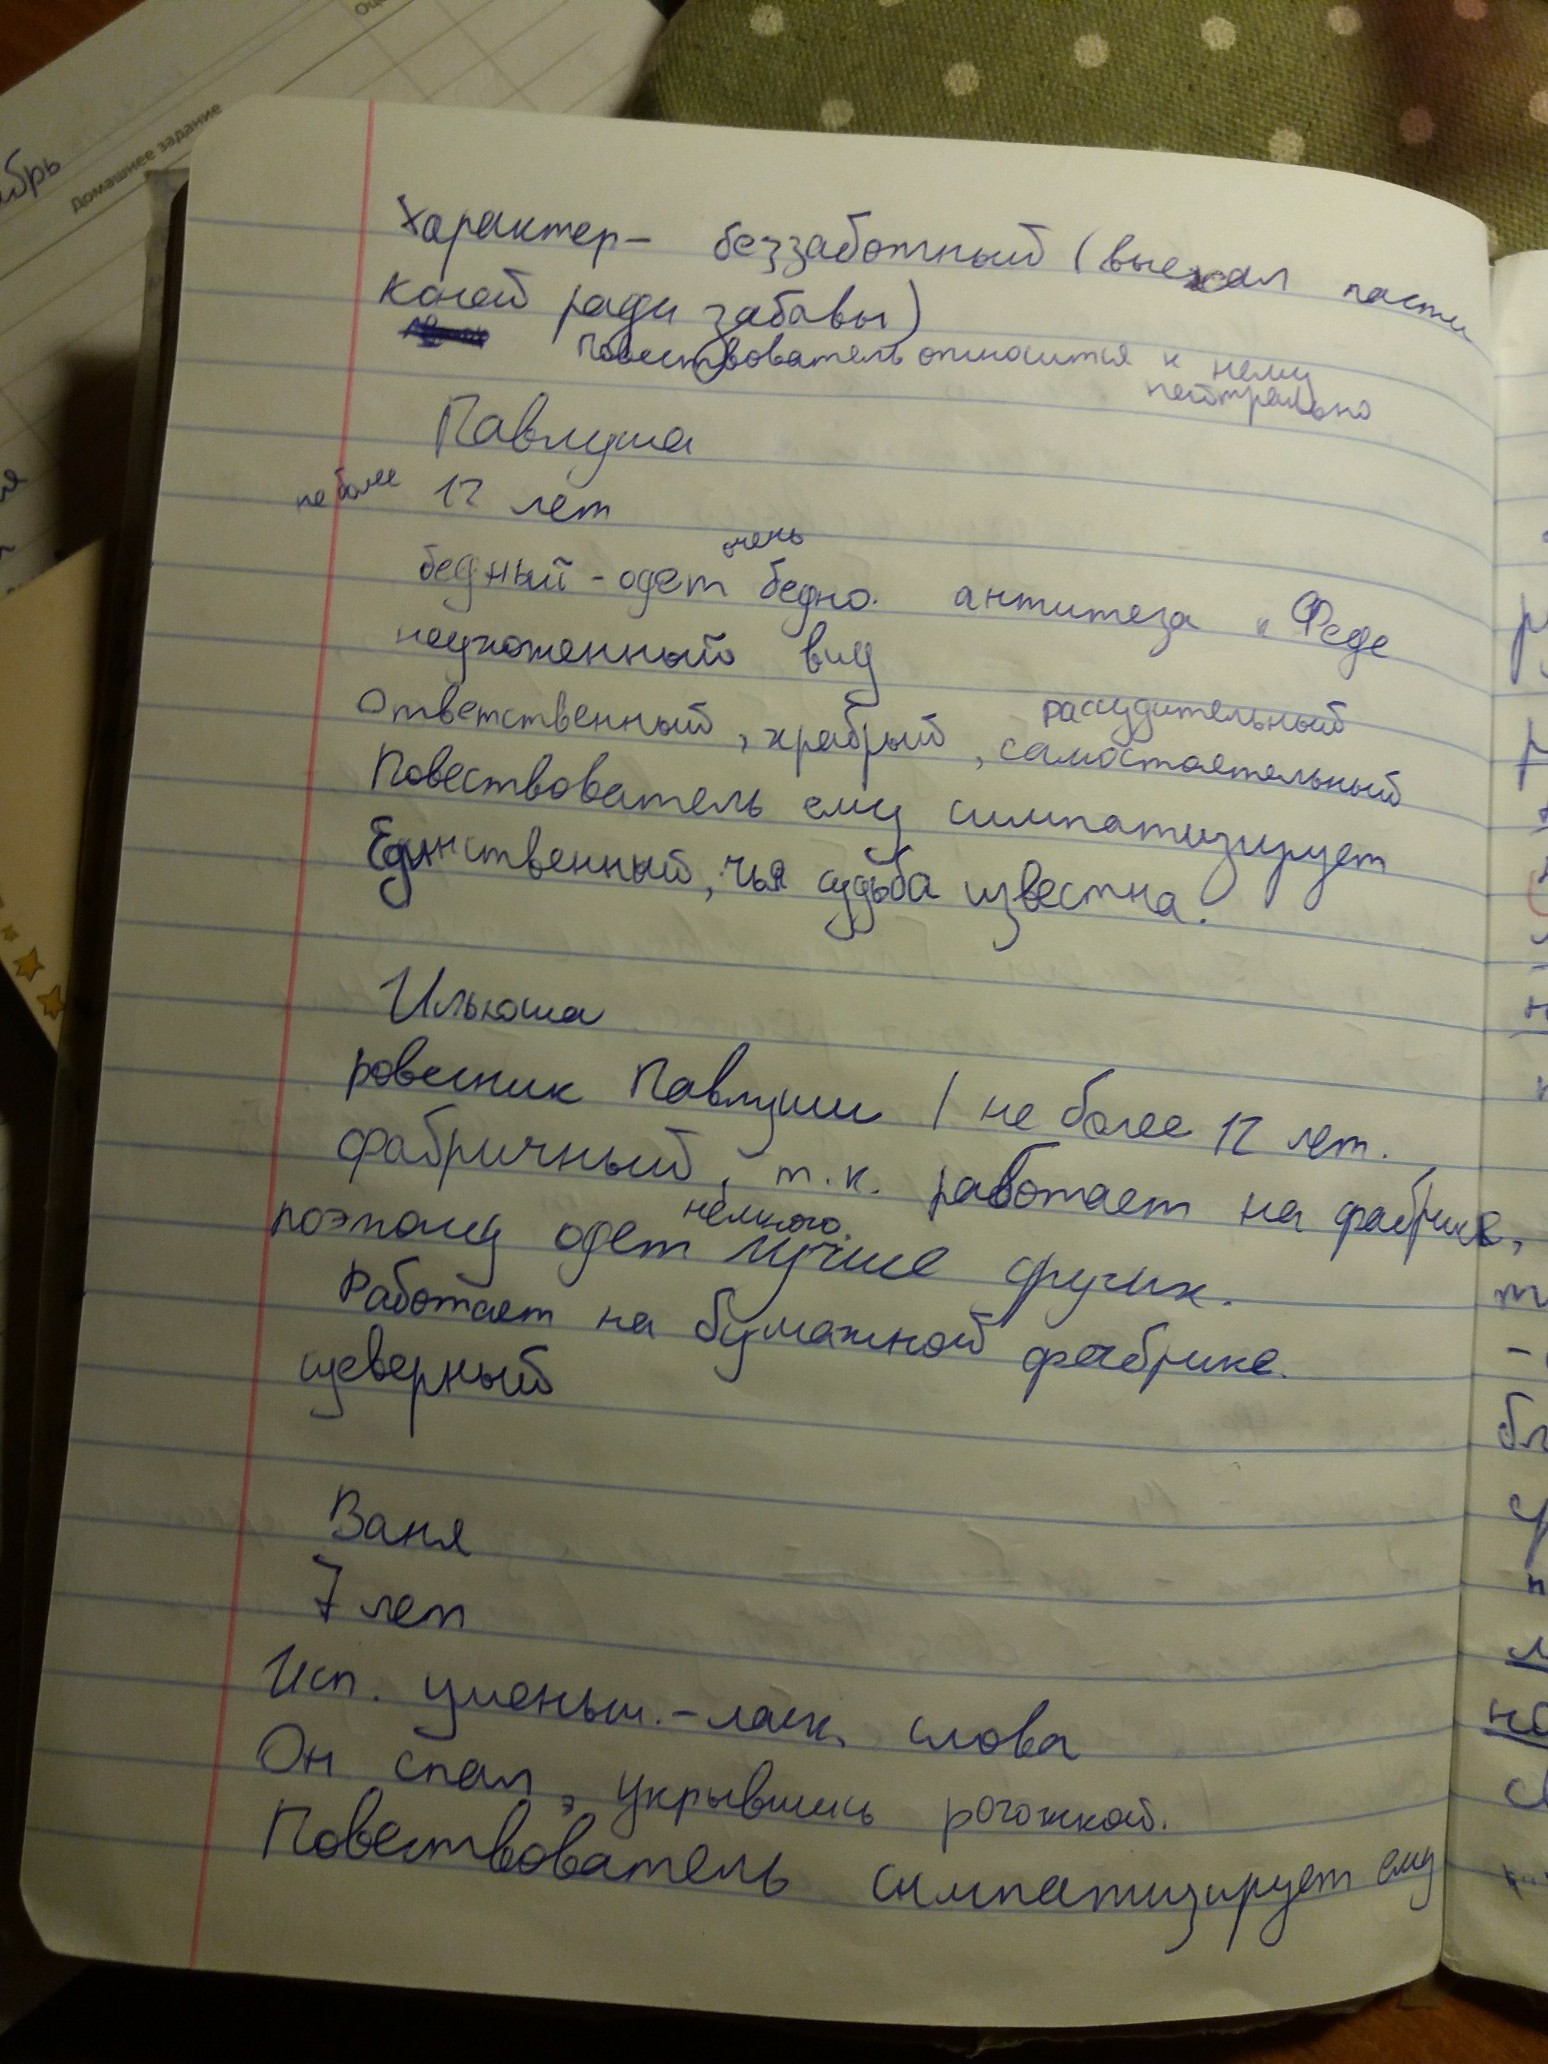 Домашнее задание
Характер- беззаботный (выехал пасти
коней ради забавы)
Повествователь относится к нему
нейтрально
Павлуша
не более 12 лет
очень
бедный - одет бедно. антитеза к Феде
неухоженный вид
рассудительный
Ответственный, храбрый, самостоятельный
Повествователь ему симпатизирует
Единственный, чья судьба известна.
Ильюша
ровесник Павлуши / не более 12 лет.
фабричный, т.к. работает на фабрике,
немного
поэтому одет лучше других.
Работает на бумажной фабрике.
суеверный
Ваня
7 лет
Исп. уменьш.-ласк. слова
Он спал, укрывшись рогожкой.
Повествователь симпатизирует ему